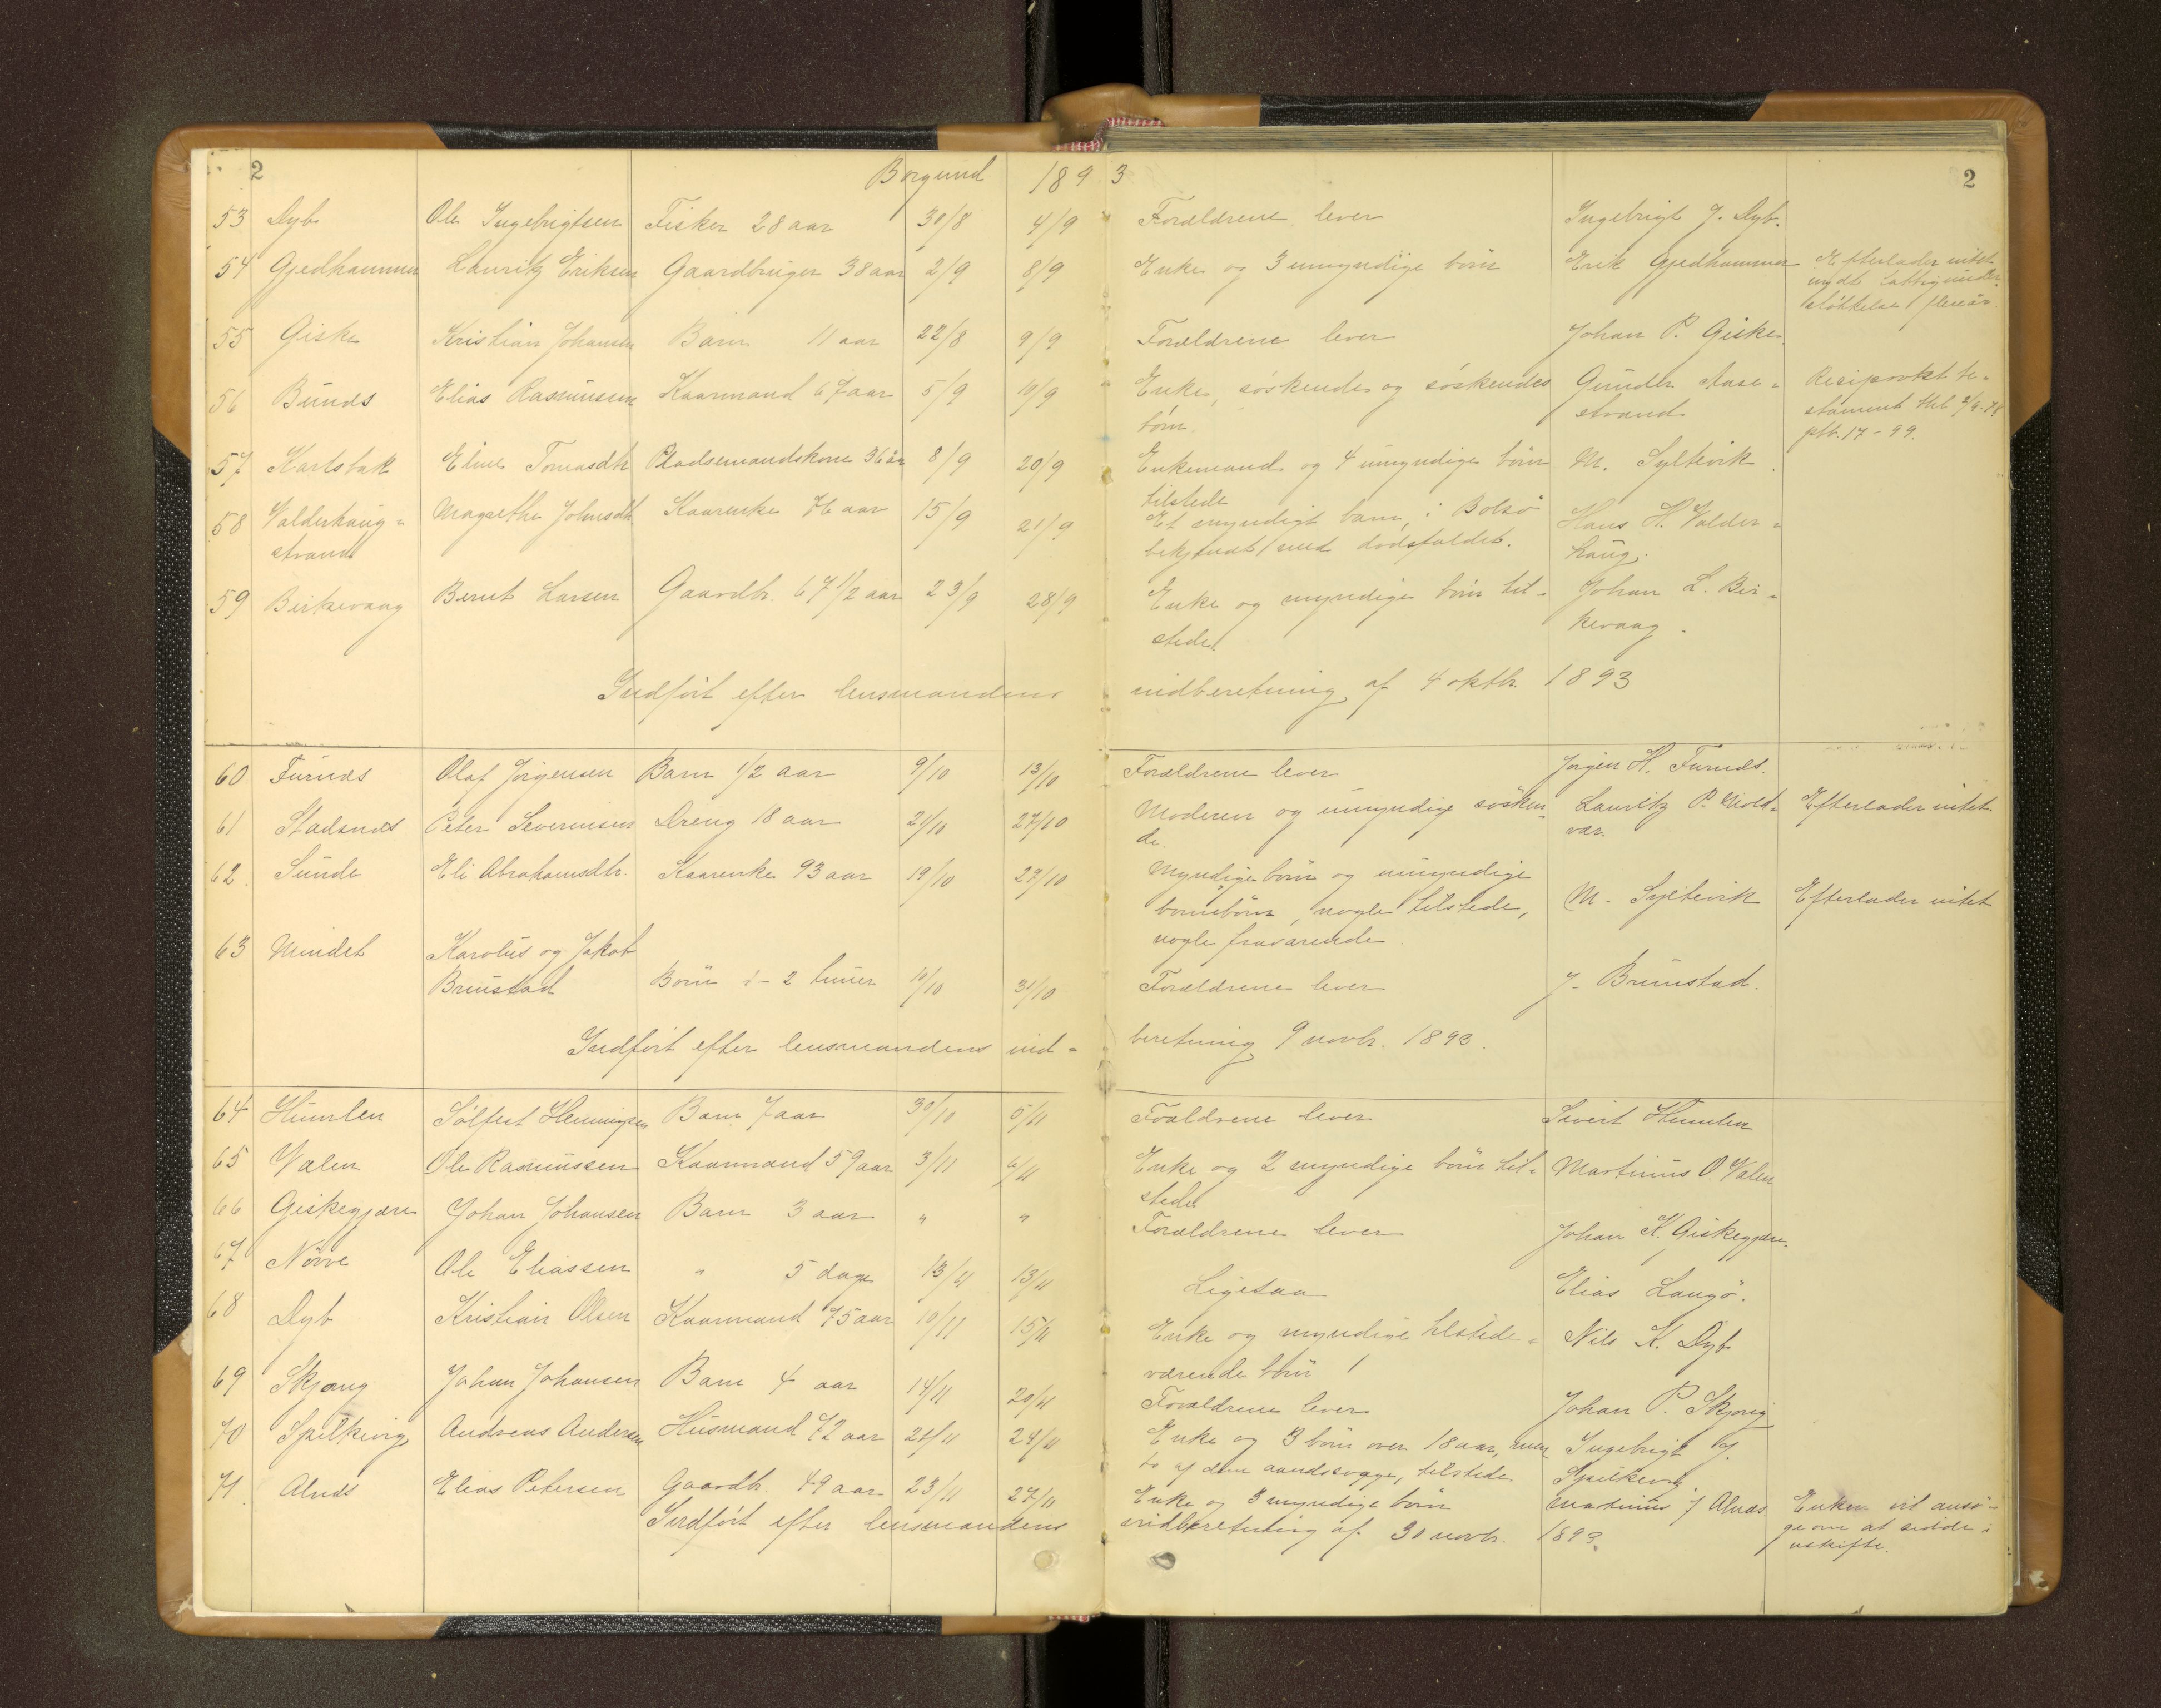 2 Borgund 1893 2
53 Dyb Ole Ingebrigtsen Fisker 28 aar 30/8 4/9 Forældrene lever Ingebrigt J. Dyb.
54 Gjedhammer Lauritz Eriksen Gaardbruger 38 aar 2/9 8/9 Enke og 3 umyndige børn Erik Gjedhammer Efterlader intet
nydt fattigunder-
støttelse i flere år
55 Giske Kristian Johansen Barn 11 aar 22/8 9/9 Forældrene lever Johan P. Giske.
56 Bunds Elias Rasmussen Kaarmand 67 aar 5/9 10/9 Enke, søskende og søskendes Gunder Aase- Resiprokt te-
børn strand stament thl 2/4-78
ptb. 17-99.
57 Karlsbak Eline Tomasdtr Pladsemandskone 36 år 8/9 20/9 Enkemand og 4 umyndige børn M. Syltevik
tilstede
58 Valderhaug- Magrethe Johnsdtr Kaarenke 76 aar 15/9 21/9 Et myndigt barn, i Bolsø Hans H. Valder-
strand bekjendt med dødsfaldet. haug.
59 Birkevaag Bernt Larsen Gaardbr. 67 1/2 aar 23/9 28/9 Enke og myndige børn til- Johan L. Bir-
stede. kevaag.
Indført efter lensmandens indberetning af 4 oktbr. 1893
60 Furnæs Olaf Jørgensen Barn 1/2 aar 9/10 13/10 Forældrene lever Jørgen H. Furnæs.
61 Stadsnæs Peter Severinsen Dreng 18 aar 21/10 27/10 Moderen og umyndige søsken- Lauritz P. Mold- Efterlader intet
de. vær.
62. Sunde Eli Abrahamsdtr. Kaarenke 93 aar 19/10 27/10 Myndige børn og umyndige
børnebørn, nogle tilstede, M. Syltevik Efterlader intet
nogle fraværende.
63 Mindet Karolus og Jakob
Brunstad Børn 1-2 timer 10/10 31/10 Forældrene lever J. Brunstad.
Indført efter lensmandens ind- beretning 9 novbr. 1893.
64 Humlen Sølfest Henningsen Barn 7 aar 30/10 5/11 Foældrene lever Sivert Humlen
65 Valen Ole Rasmussen Kaarmand 59 aar 3/11 6/11 Enke og 2 myndige børn til- Martinus O. Valen
stede
66 Giskegjære Johan Johansen Barn 3 aar " " Forældrene lever Johan K. Giskegjære.
67 Nørve Ole Eliassen " 5 dage 13/11 13/11 Ligesaa Elias Langø.
68 Dyb Kristian Olsen Kaarmand 75 aar 10/11 15/11 Enke og myndige tilstede- Nils K. Dyb
værende børn
69 Skjong Johan Johansen Barn 4 aar 14/11 20/11 Forældrene lever Johan P. Skjong
70 Spilkevig Andreas Andersen Husmand 72 aar 21/11 24/11 Enke og 3 børn over 18 aar, men Ingebrigt J.
to af dem aandssvage, tilstede Spilkevig
71. Alnæs Elias Petersen Gaardbr. 49 aar 23/11 27/11 Enke og 3 myndige børn Martinus J Alnæs. Enken vil ansø-
Indført efter lensmandens indberetning af 30 novbr. 1893. ge om at sidde i
uskifte.